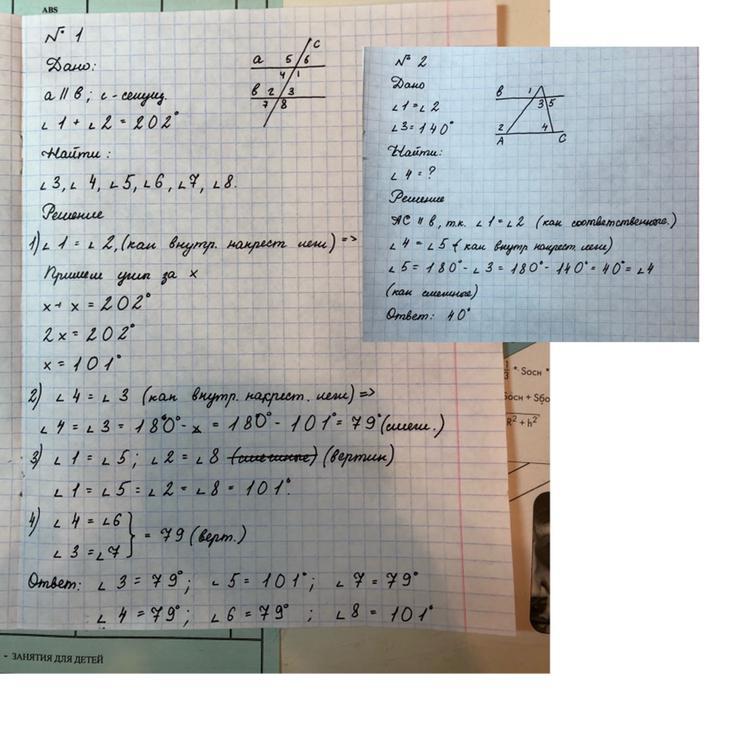 ABS
№ 1
Дано:
а || в; с - секущ.
∠1 + ∠2 = 202°
Найти:
∠3, ∠4, ∠5, ∠6, ∠7, ∠8.
Решение
1) ∠1 = ∠2, (как внутр. накрест леж) =>
Примем угл за x
x + x = 202°
2x = 202°
x = 101°
2) ∠4 = ∠3 (как внутр. накрест. леж) =>
∠4 = ∠3 = 180° - x = 180° - 101° = 79° (смеж.)
3) ∠1 = ∠5; ∠2 = ∠8 (смежные) (вертик)
∠1 = ∠5 = ∠2 = ∠8 = 101°.
4) ∠4 = ∠6
∠3 = ∠7 } = 79 (верт.)
Ответ: ∠3 = 79°; ∠5 = 101°; ∠7 = 79°
∠4 = 79°; ∠6 = 79°; ∠8 = 101°
с
а 5 6
4 1
в 2 3
7 8
№ 2
Дано
∠1 = ∠2
∠3 = 140°
Найти:
∠4 = ?
Решение
АС || в, т.к. ∠1 = ∠2 (как соответственные.)
∠4 = ∠5 (как внутр накрест леж)
∠5 = 180° - ∠3 = 180° - 140° = 40° = ∠4
(как смежные)
Ответ: 40°
в 1
3 5
2 4
А С
1/3 * Sосн *
Sосн + Sбо
R² + h²
- ЗАНЯТИЯ ДЛЯ ДЕТЕЙ